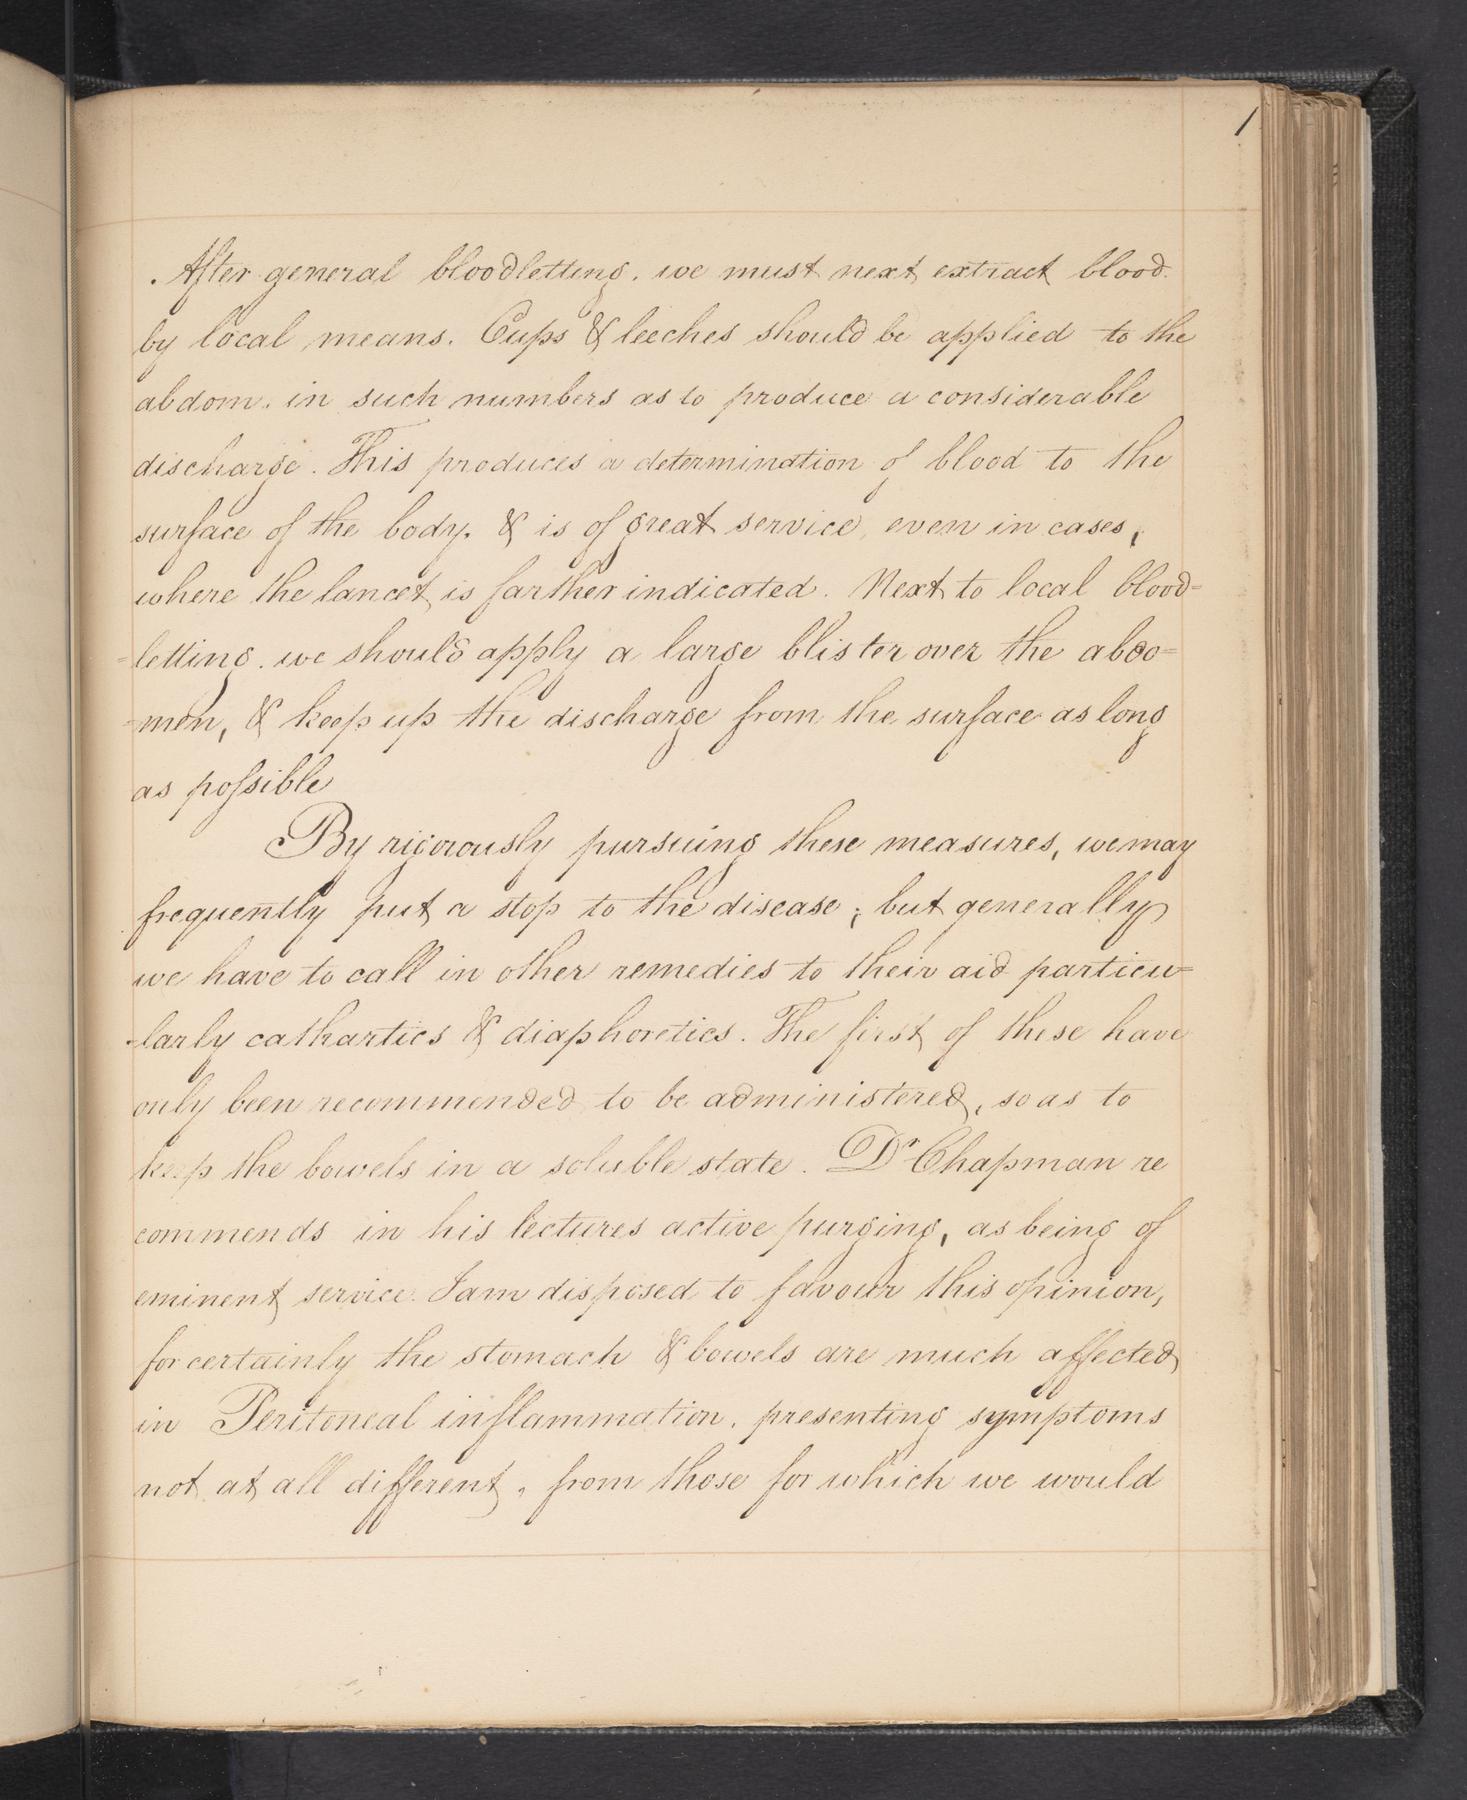 1
After general bloodletting. we must next extract blood
by local means. Cups & leeches should be applied to the
abdom. in such numbers as to produce a considerable
discharge. This produces a determination of blood to the
surface of the body. & is of great service, even in cases,
where the lancet is farther indicated. Next to local blood=
=letting. we should apply a large blister over the abdo=
=men, & keep up the discharge from the surface as long
as possible
By rigorously pursuing these measures, we may
frequently put a stop to the disease; but generally
we have to call in other remedies to their aid particu=
-larly cathartics & diaphoretics. The first of these have
only been recommended to be administered, so as to
keep the bowels in a soluble state. Dr Chapman re
commends in his lectures active purging, as being of
eminent service. I am disposed to favour this opinion,
for certainly the stomach & bowels are much affected
in Peritoneal inflammation. presenting symptoms
not at all different, from those for which we would